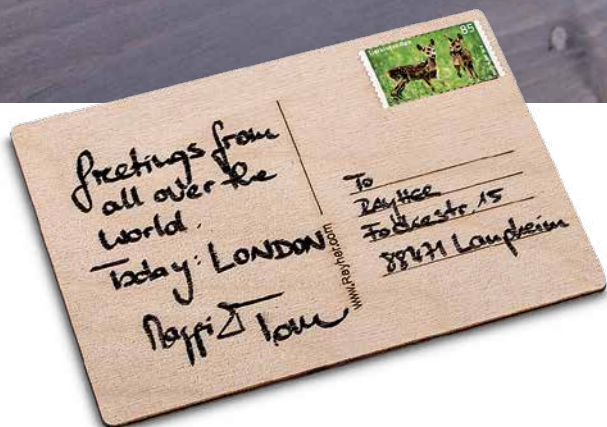 Greetings from
all over the
world.
Today: LONDON
Tom
www.Rayher.com
85
To
RAYHER
Fockestr. 15
88471 Laupheim